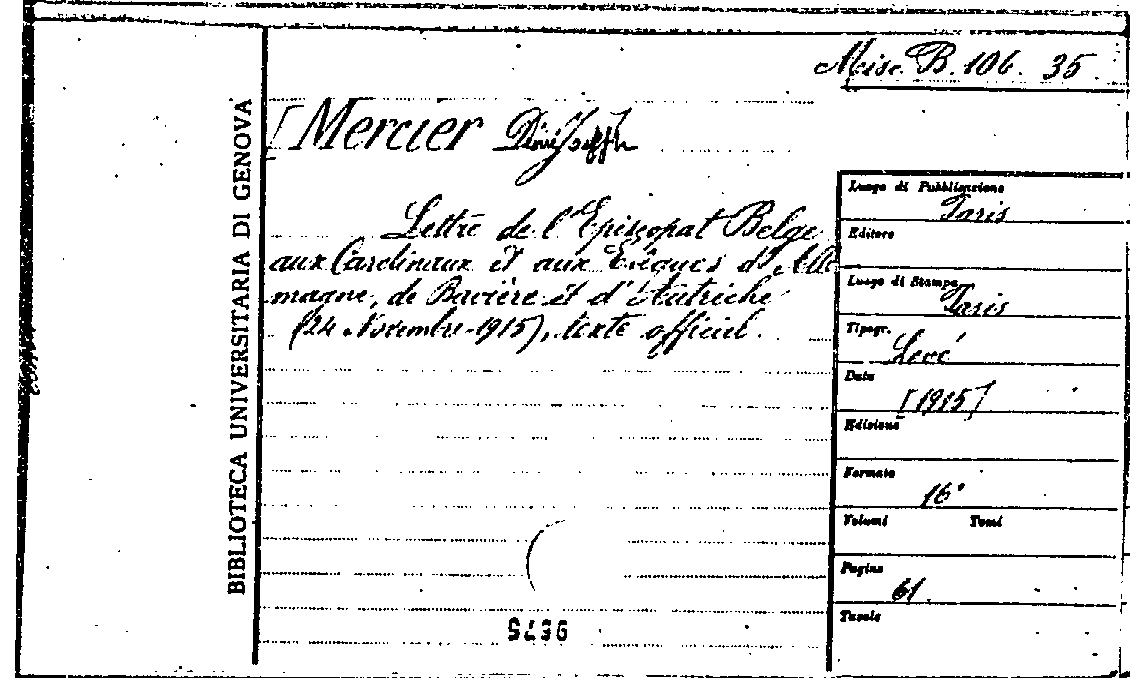 Misc. B. 106. 35
BIBLIOTECA UNIVERSITARIA DI GENOVA
[Mercier Désiré Joseph]
Lettre de l'Episcopat Belge
aux Cardinaux et aux Evêques d'Alle
magne, de Bavière et d'Autriche
(24 Novembre 1915), texte officiel.
Luogo di Pubblicazione
Paris
Editore
Luogo di Stampa
Paris
Tipogr.
Levé
Data
[1915]
Edizione
Formato
16°
Volumi Tomi
Pagine
61.
Tavole